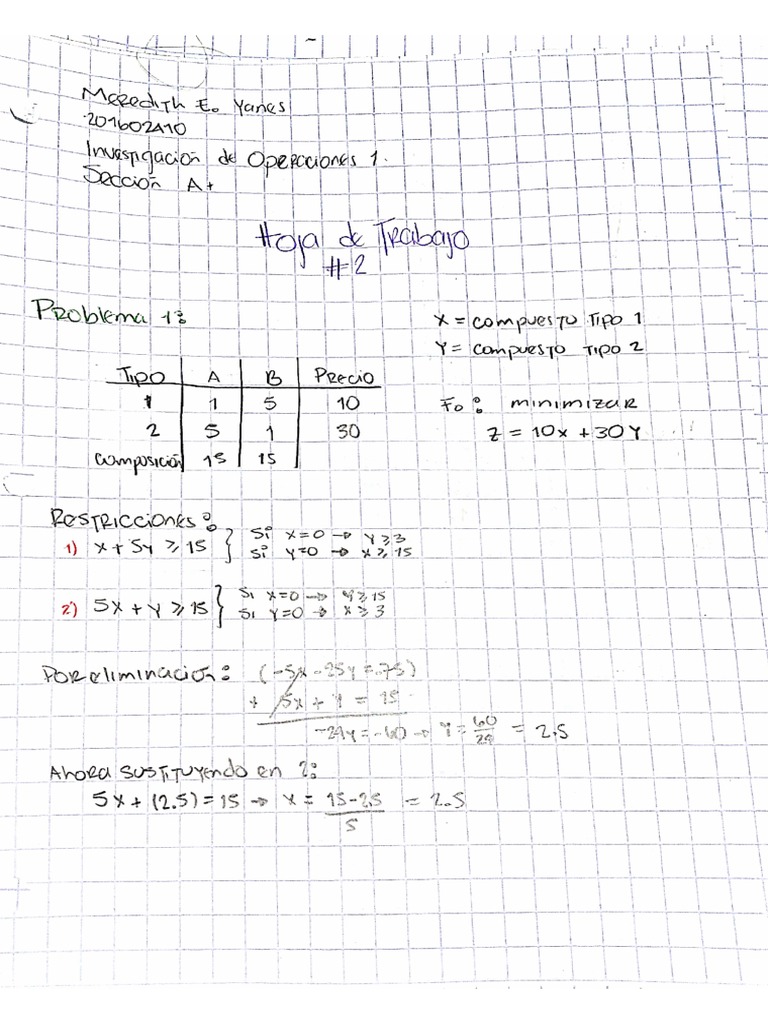 Meredith E. Yanes
201602410
Investigación de Operaciones 1.
Sección A+
Hoja de Trabajo
#2
Problema 1:
X = compuesto Tipo 1
Y = compuesto Tipo 2
Tipo A B Precio
1 1 5 10
2 5 1 30
composición 15 15
Fo: minimizar
Z = 10x + 30Y
Restricciones:
1) x + 5y ≥ 15 } Si x=0 → Y ≥ 3
Si y=0 → x ≥ 15
2) 5x + y ≥ 15 } Si x=0 → Y ≥ 15
Si Y=0 → x ≥ 3
Por eliminación: (-5x - 25y = -75)
+ 5x + Y = 15
-24y = -60 → Y = 60/24 = 2.5
Ahora sustituyendo en 2:
5x + (2.5) = 15 → x = 15-2.5/5 = 2.5